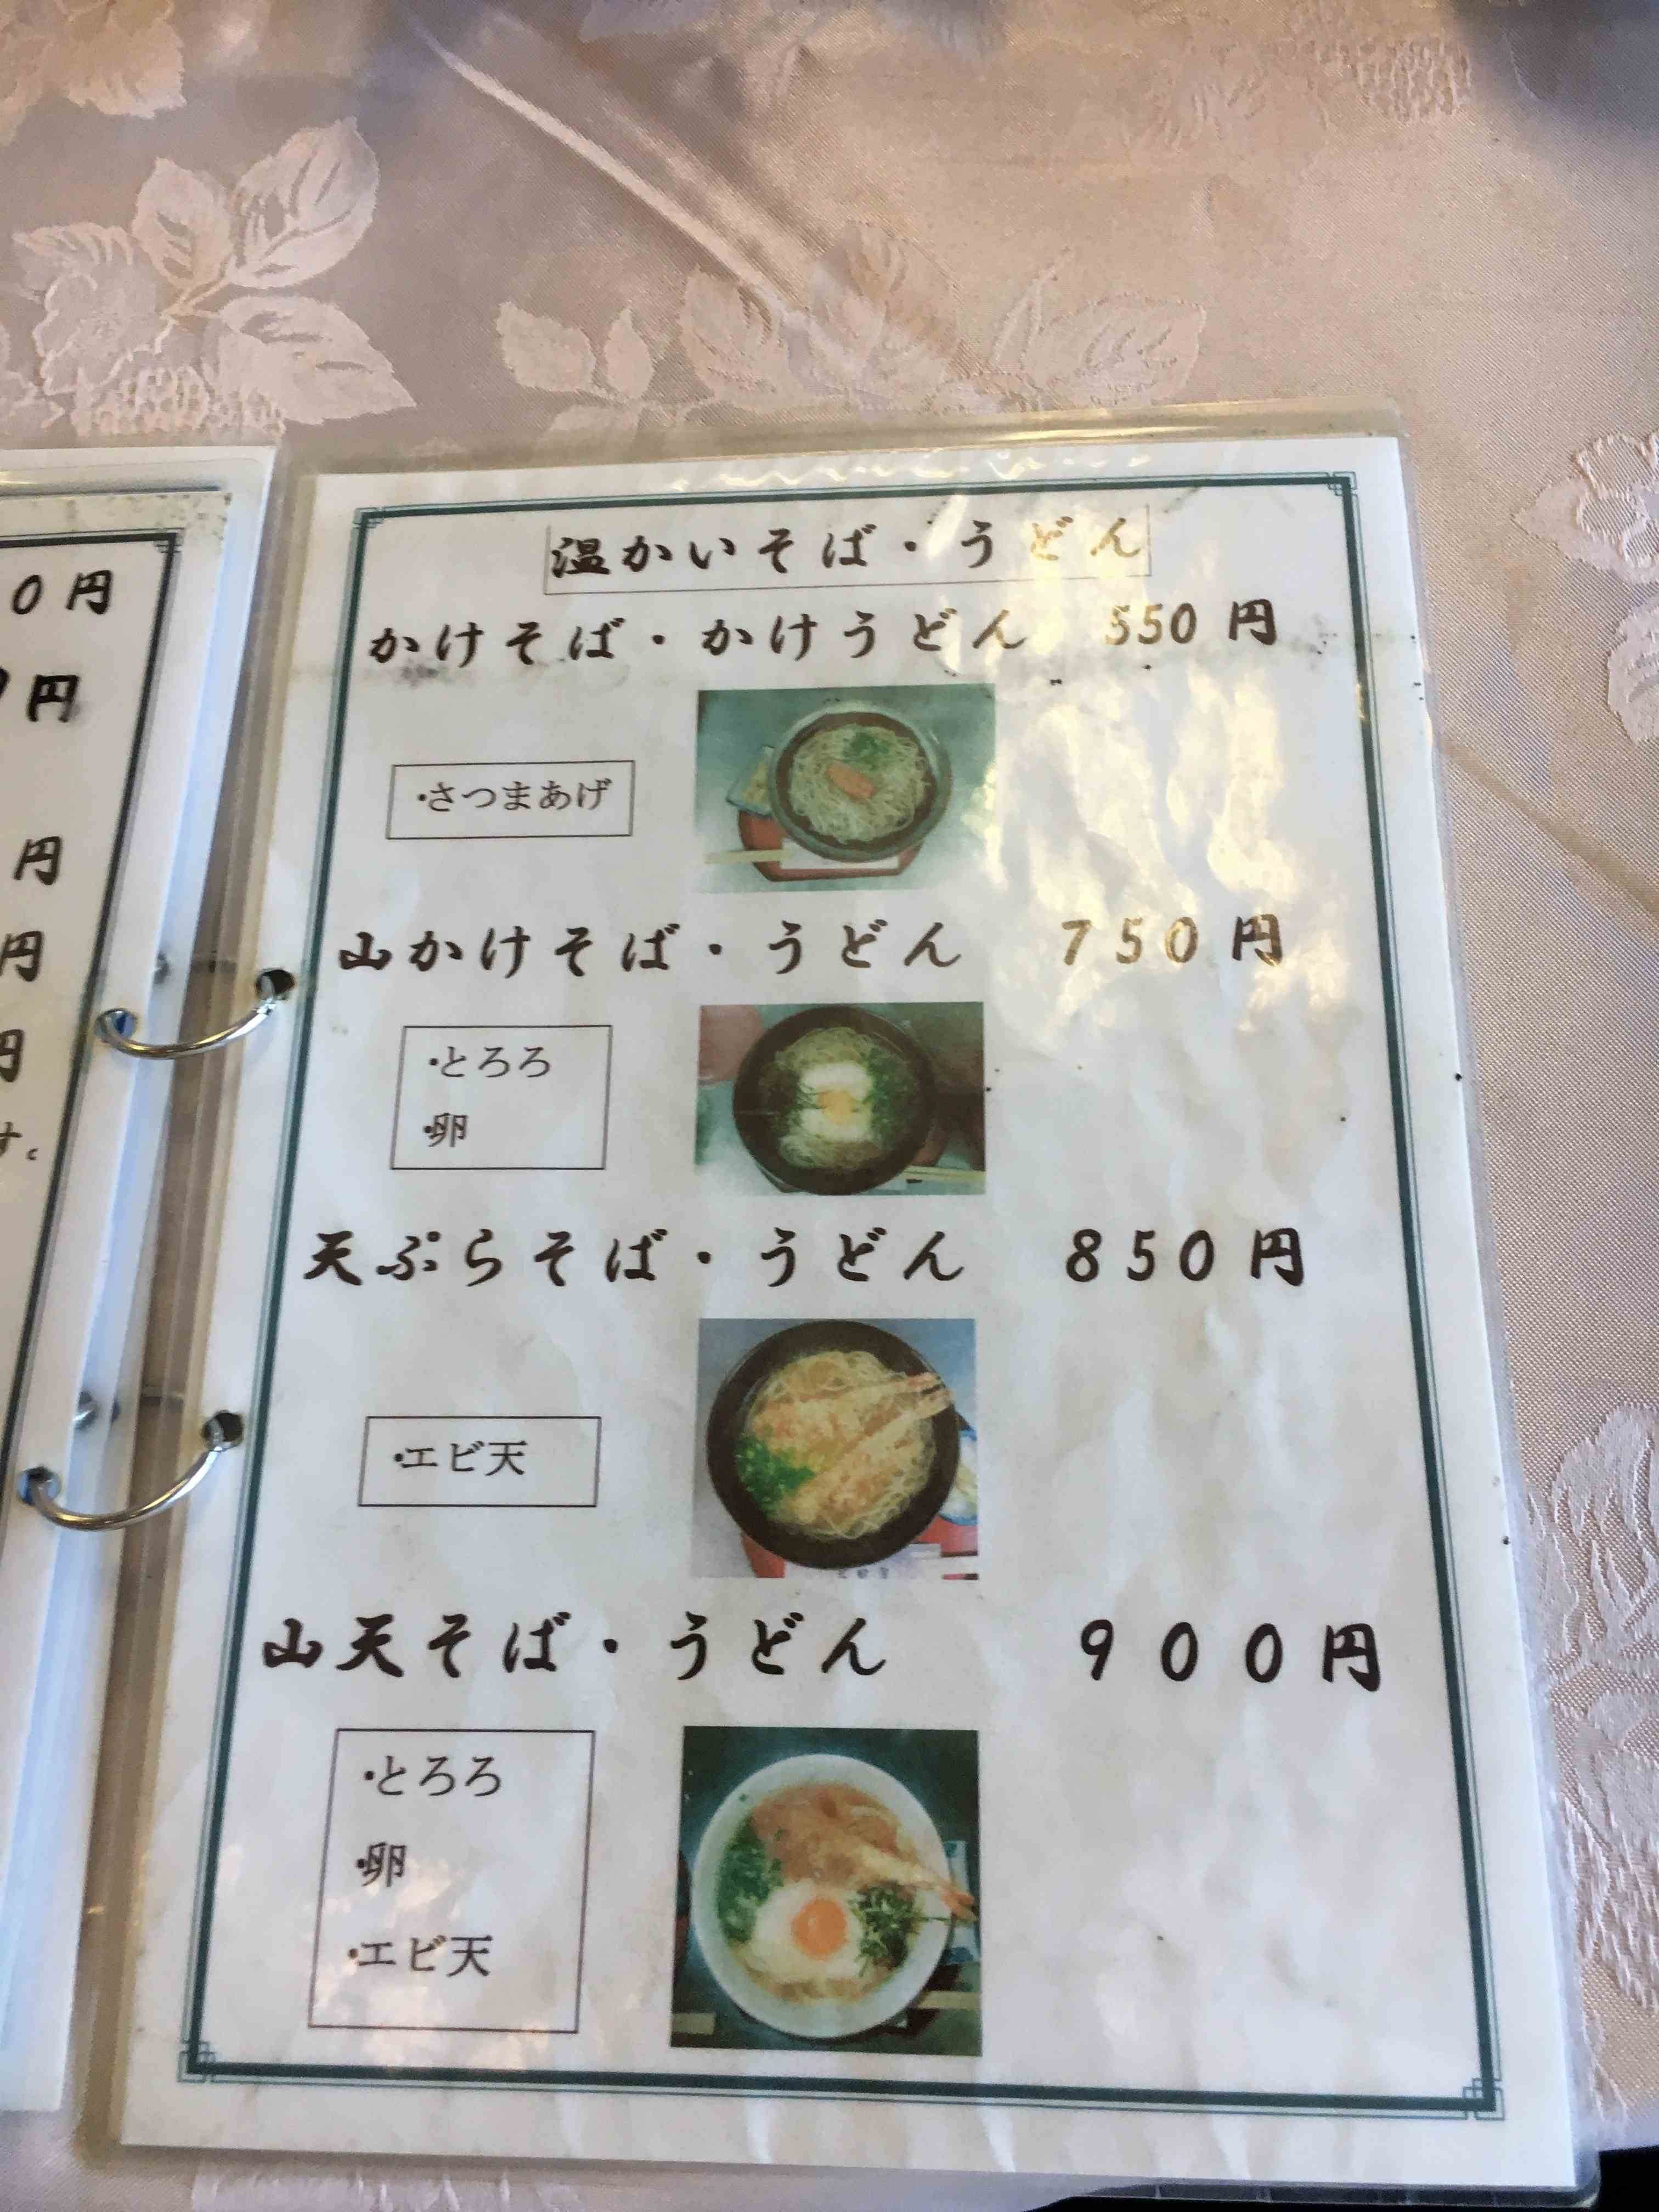 0円
円
円
円
円
す。
温かいそば・うどん
かけそば・かけうどん 550円
・さつまあげ
山かけそば・うどん 750円
・とろろ
・卵
天ぷらそば・うどん 850円
・エビ天
山天そば・うどん 900円
・とろろ
・卵
・エビ天